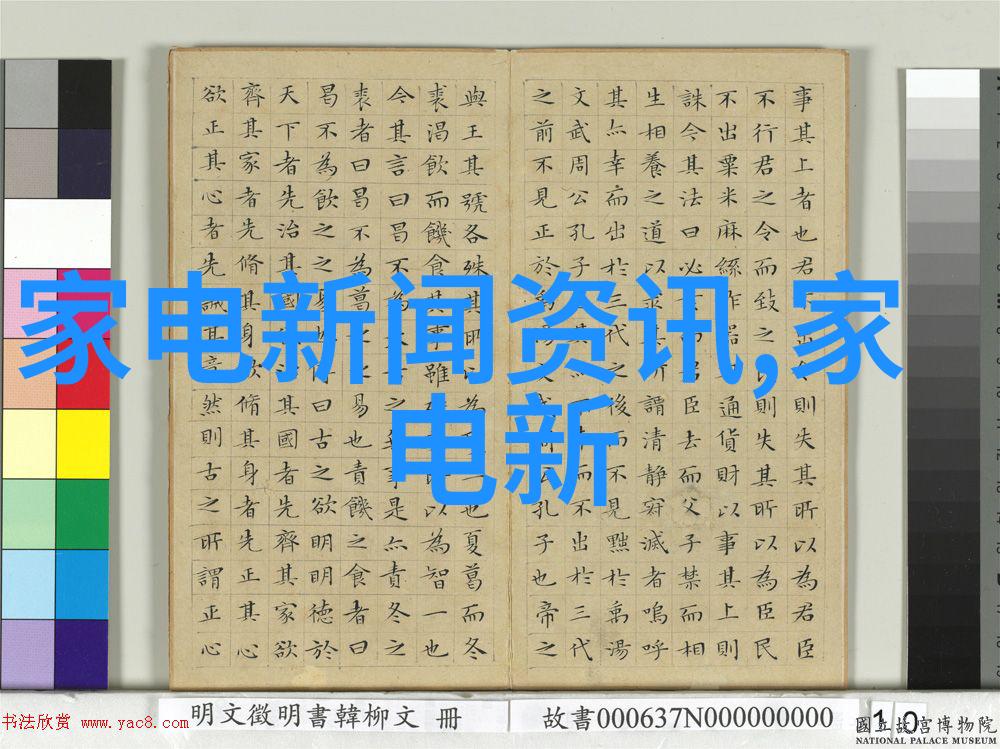 家电新闻资讯,家
电新
事其上者也君出令則失其所以為君臣
不行君之令而致之則失其所以為臣民
不出粟米麻絲作器通貨財以事其上則
誅今其法曰必而君臣去而父子禁而相
生相養之道以求其所謂清静寂滅者嗚呼
其亦幸而出於三代之後而不見黜於禹湯
文武周公孔子其而不出於三代
之前不見正於孔子也帝之
與王其號各殊其所以為一也夏葛而冬
裘渴飲而饑食其事雖以為智一也
今其言曰曷不為之事是亦責冬之
裘者曰曷不為葛之之易也責饑之食者曰
曷不為飲之之易曰古之欲明明德於
天下者先治其國其國者先齊其家欲
齊其家者先脩其身欲脩其身者先正其心
欲正其心者先誠其意然則古之所謂正心
明文徵明書韓柳文 冊
故書000637N000000000
10
书法欣赏 www.yac8.com
國立故宮博物院
NATIONAL PALACE MUSEUM